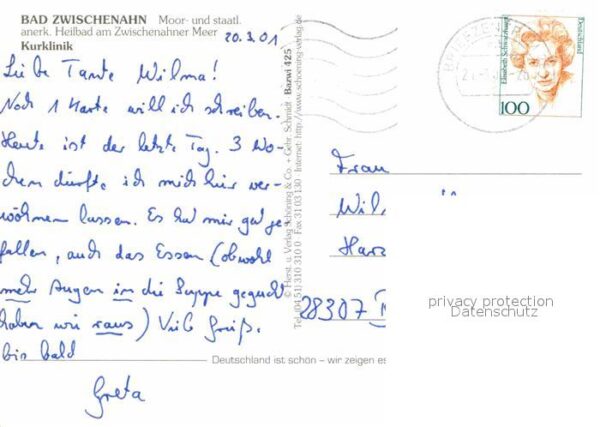 BAD ZWISCHENAHN Moor- und staatl.
anerk. Heilbad am Zwischenahner Meer
Kurklinik
20.3.01
Liebe Tante Wilma!
Noch 1 Karte will ich schreiben.
Heute ist der letzte Tag. 3 Wo-
chen durfte ich mich hier ver-
wöhnen lassen. Es hat mir gut ge-
fallen, auch das Essen (obwohl
mehr Augen in die Suppe geguckt
haben wie raus) Viele Grüße.
bis bald
Greta
© Herst. u. Verlag Schöning & Co. + Gebr. Schmidt Banwi 425
Tel. (04 51) 310 310 0 · Fax 31 03 130 · Internet: http://www.schoening-verlag.de
Deutschland ist schön – wir zeigen es
BRIEFZEN
Deutschland
Elisabeth Schwarzhaupt
100
Frau
Wil
Har
28307
privacy protection
Datenschutz